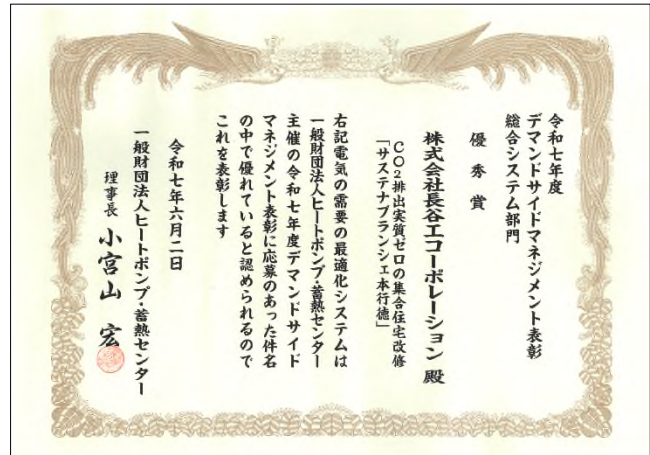 令和七年度
デマンドサイドマネジメント表彰
総合システム部門
優秀賞
株式会社長谷工コーポレーション 殿
CO2排出実質ゼロの集合住宅改修
「サステナブランシェ本行徳」
右記電気の需要の最適化システムは
一般財団法人ヒートポンプ・蓄熱センター
主催の令和七年度デマンドサイド
マネジメント表彰に応募のあった件名
の中で優れていると認められるので
これを表彰します
令和七年六月二日
一般財団法人ヒートポンプ・蓄熱センター
理事長 小宮山 宏